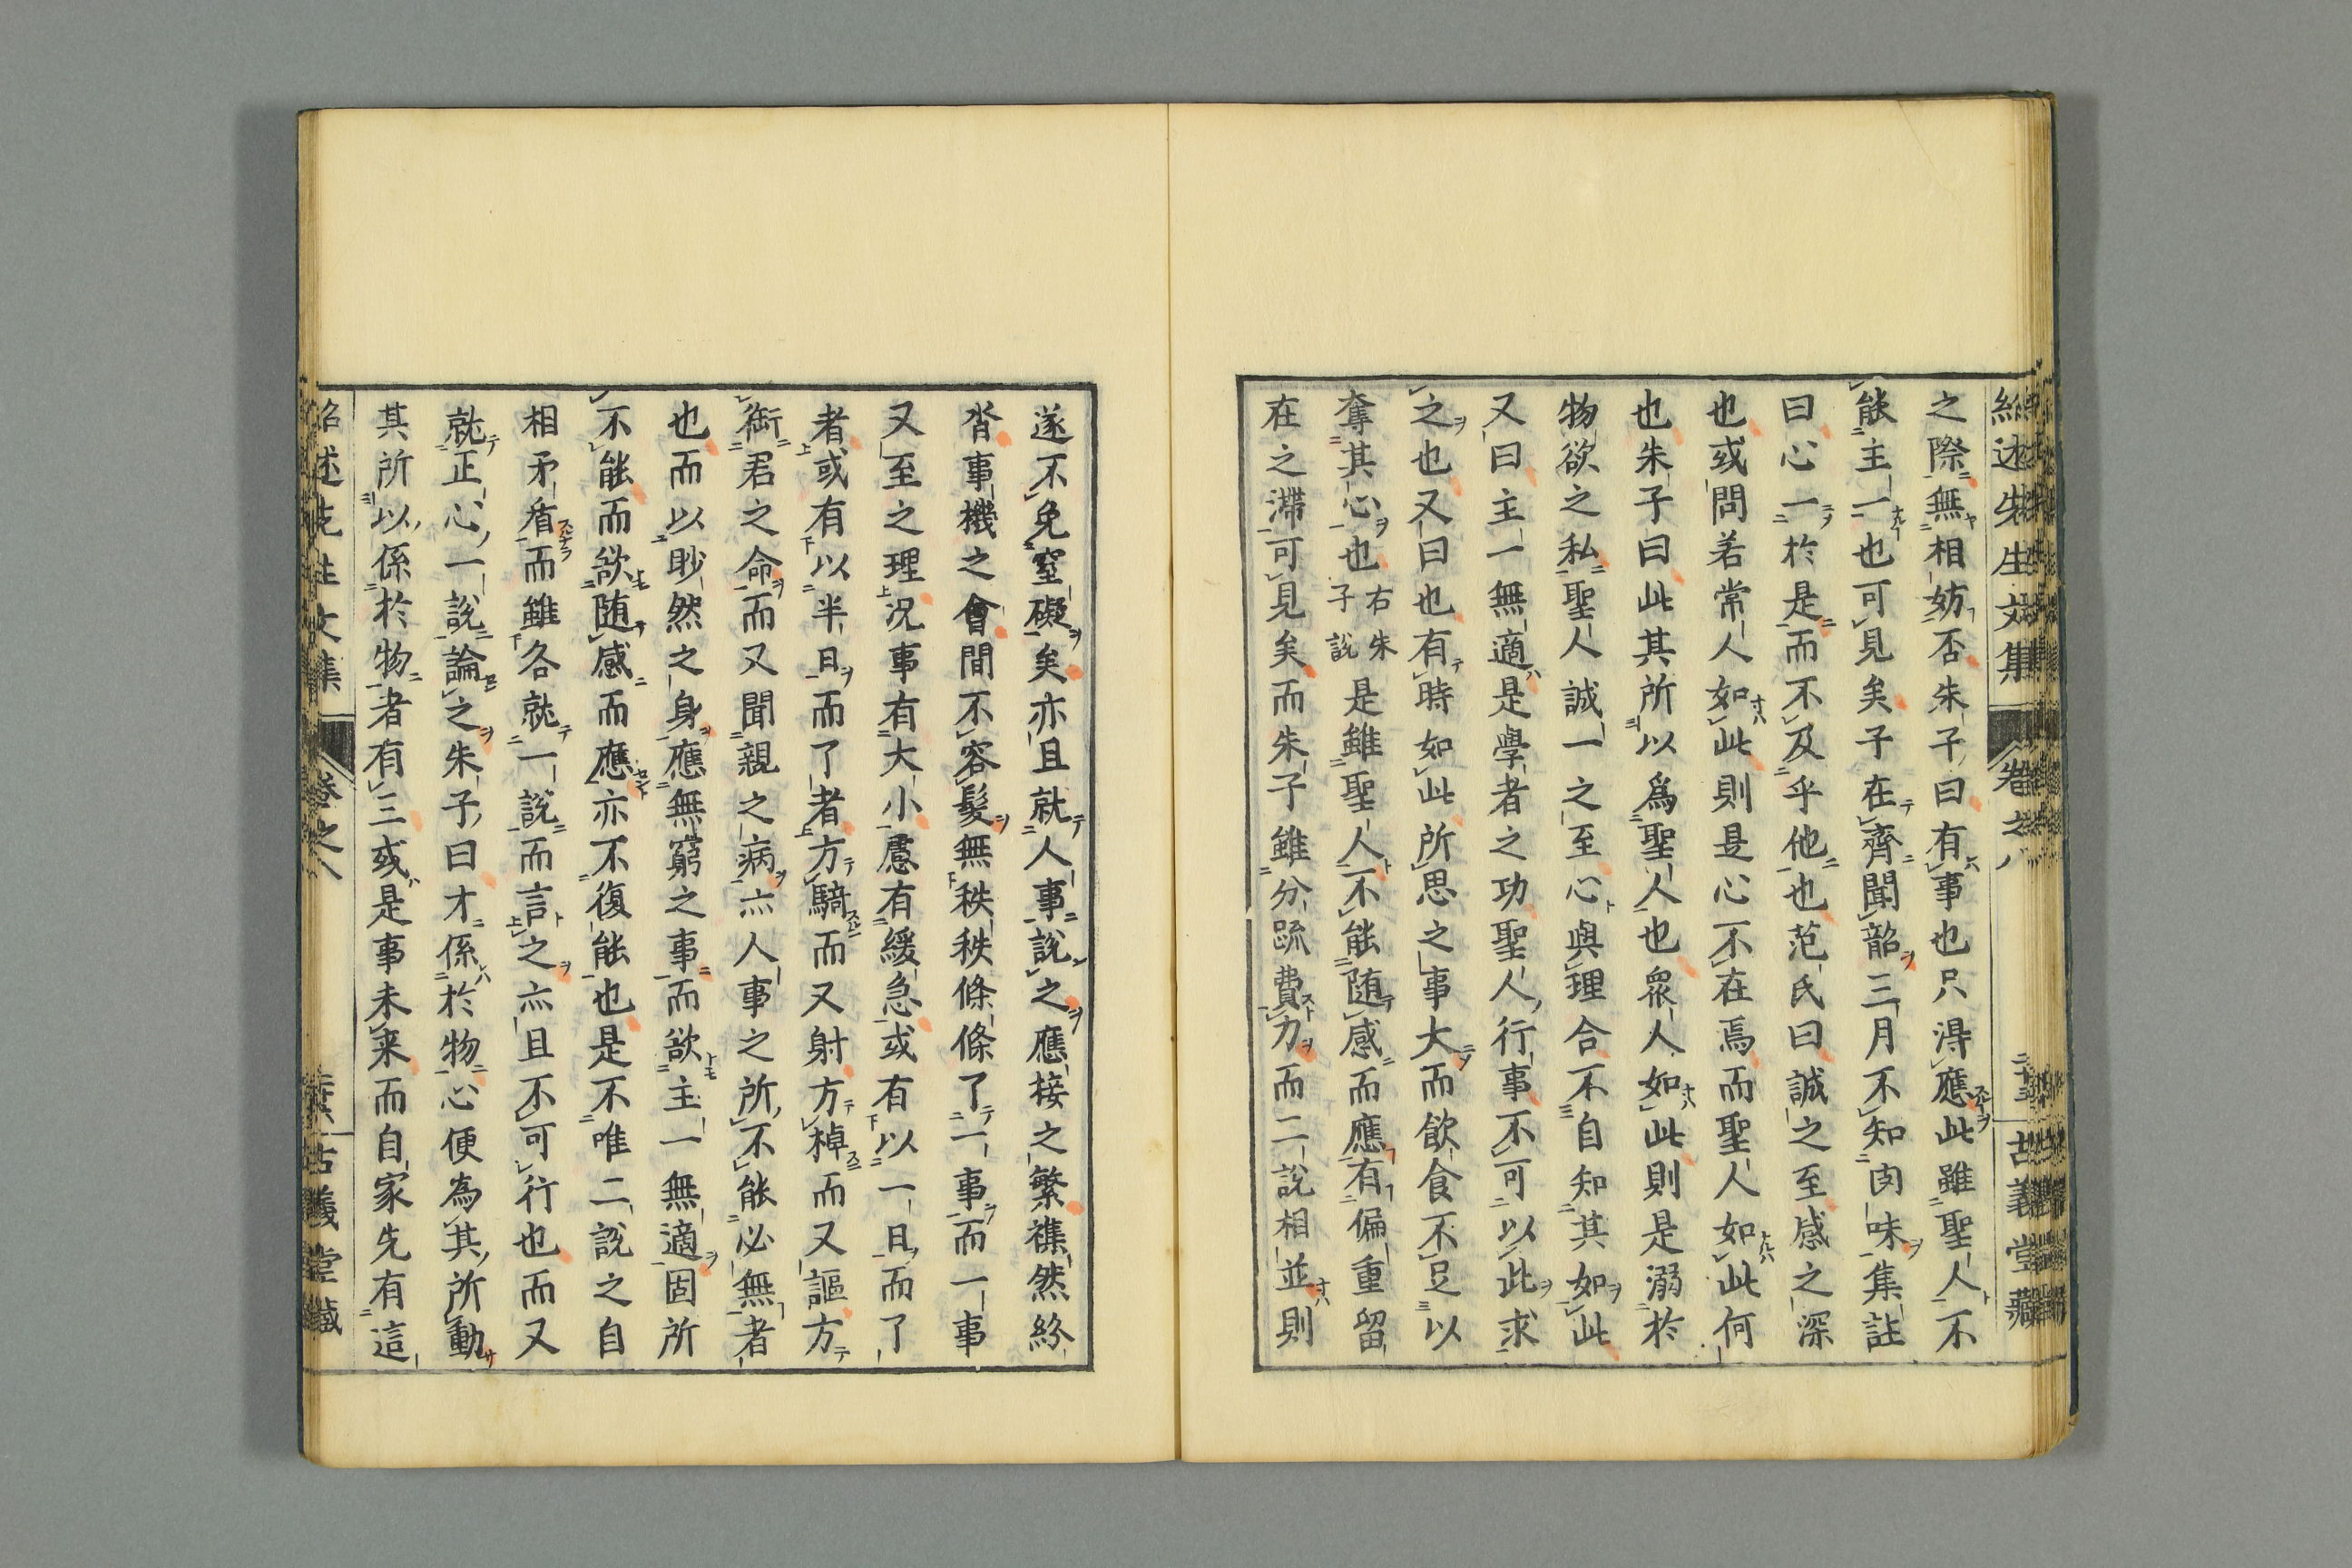 紹述先生文集 卷之八 二十三 古義堂藏
之際無相妨否朱子曰有事也只得應此雖聖人不
能主一也可見矣子在齊聞韶三月不知肉味集註
曰心一於是而不及乎他也范氏曰誠之至感之深
也或問若常人如此則是心不在焉而聖人如此何
也朱子曰此其所以爲聖人也衆人如此則是溺於
物欲之私聖人誠一之至心與理合不自知其如此
又曰主一無適是學者之功聖人行事不可以此求
之也又曰也有時如此所思之事大而飮食不足以
奪其心也右朱子說是雖聖人不能随感而應有偏重留
在之滯可見矣而朱子雖分疏費力而二說相並則
遂不免窒礙矣亦且就人事說之應接之繁襍然紛
沓事機之會間不容髮無秩秩條條了一事而一事
又至之理況事有大小慮有緩急或有以一日而了
者或有以半日而了者方騎而又射方棹而又謳方
銜君之命而又聞親之病亦人事之所不能必無者
也而以眇然之身應無窮之事而欲主一無適固所
不能而欲随感而應亦不復能也是不唯二說之自
相矛盾而雖各就一說而言之亦且不可行也而又
就正心一說論之朱子曰才係於物心便為其所動
其所以係於物者有三或是事未来而自家先有這
紹述先生文集 卷之八 古義堂藏